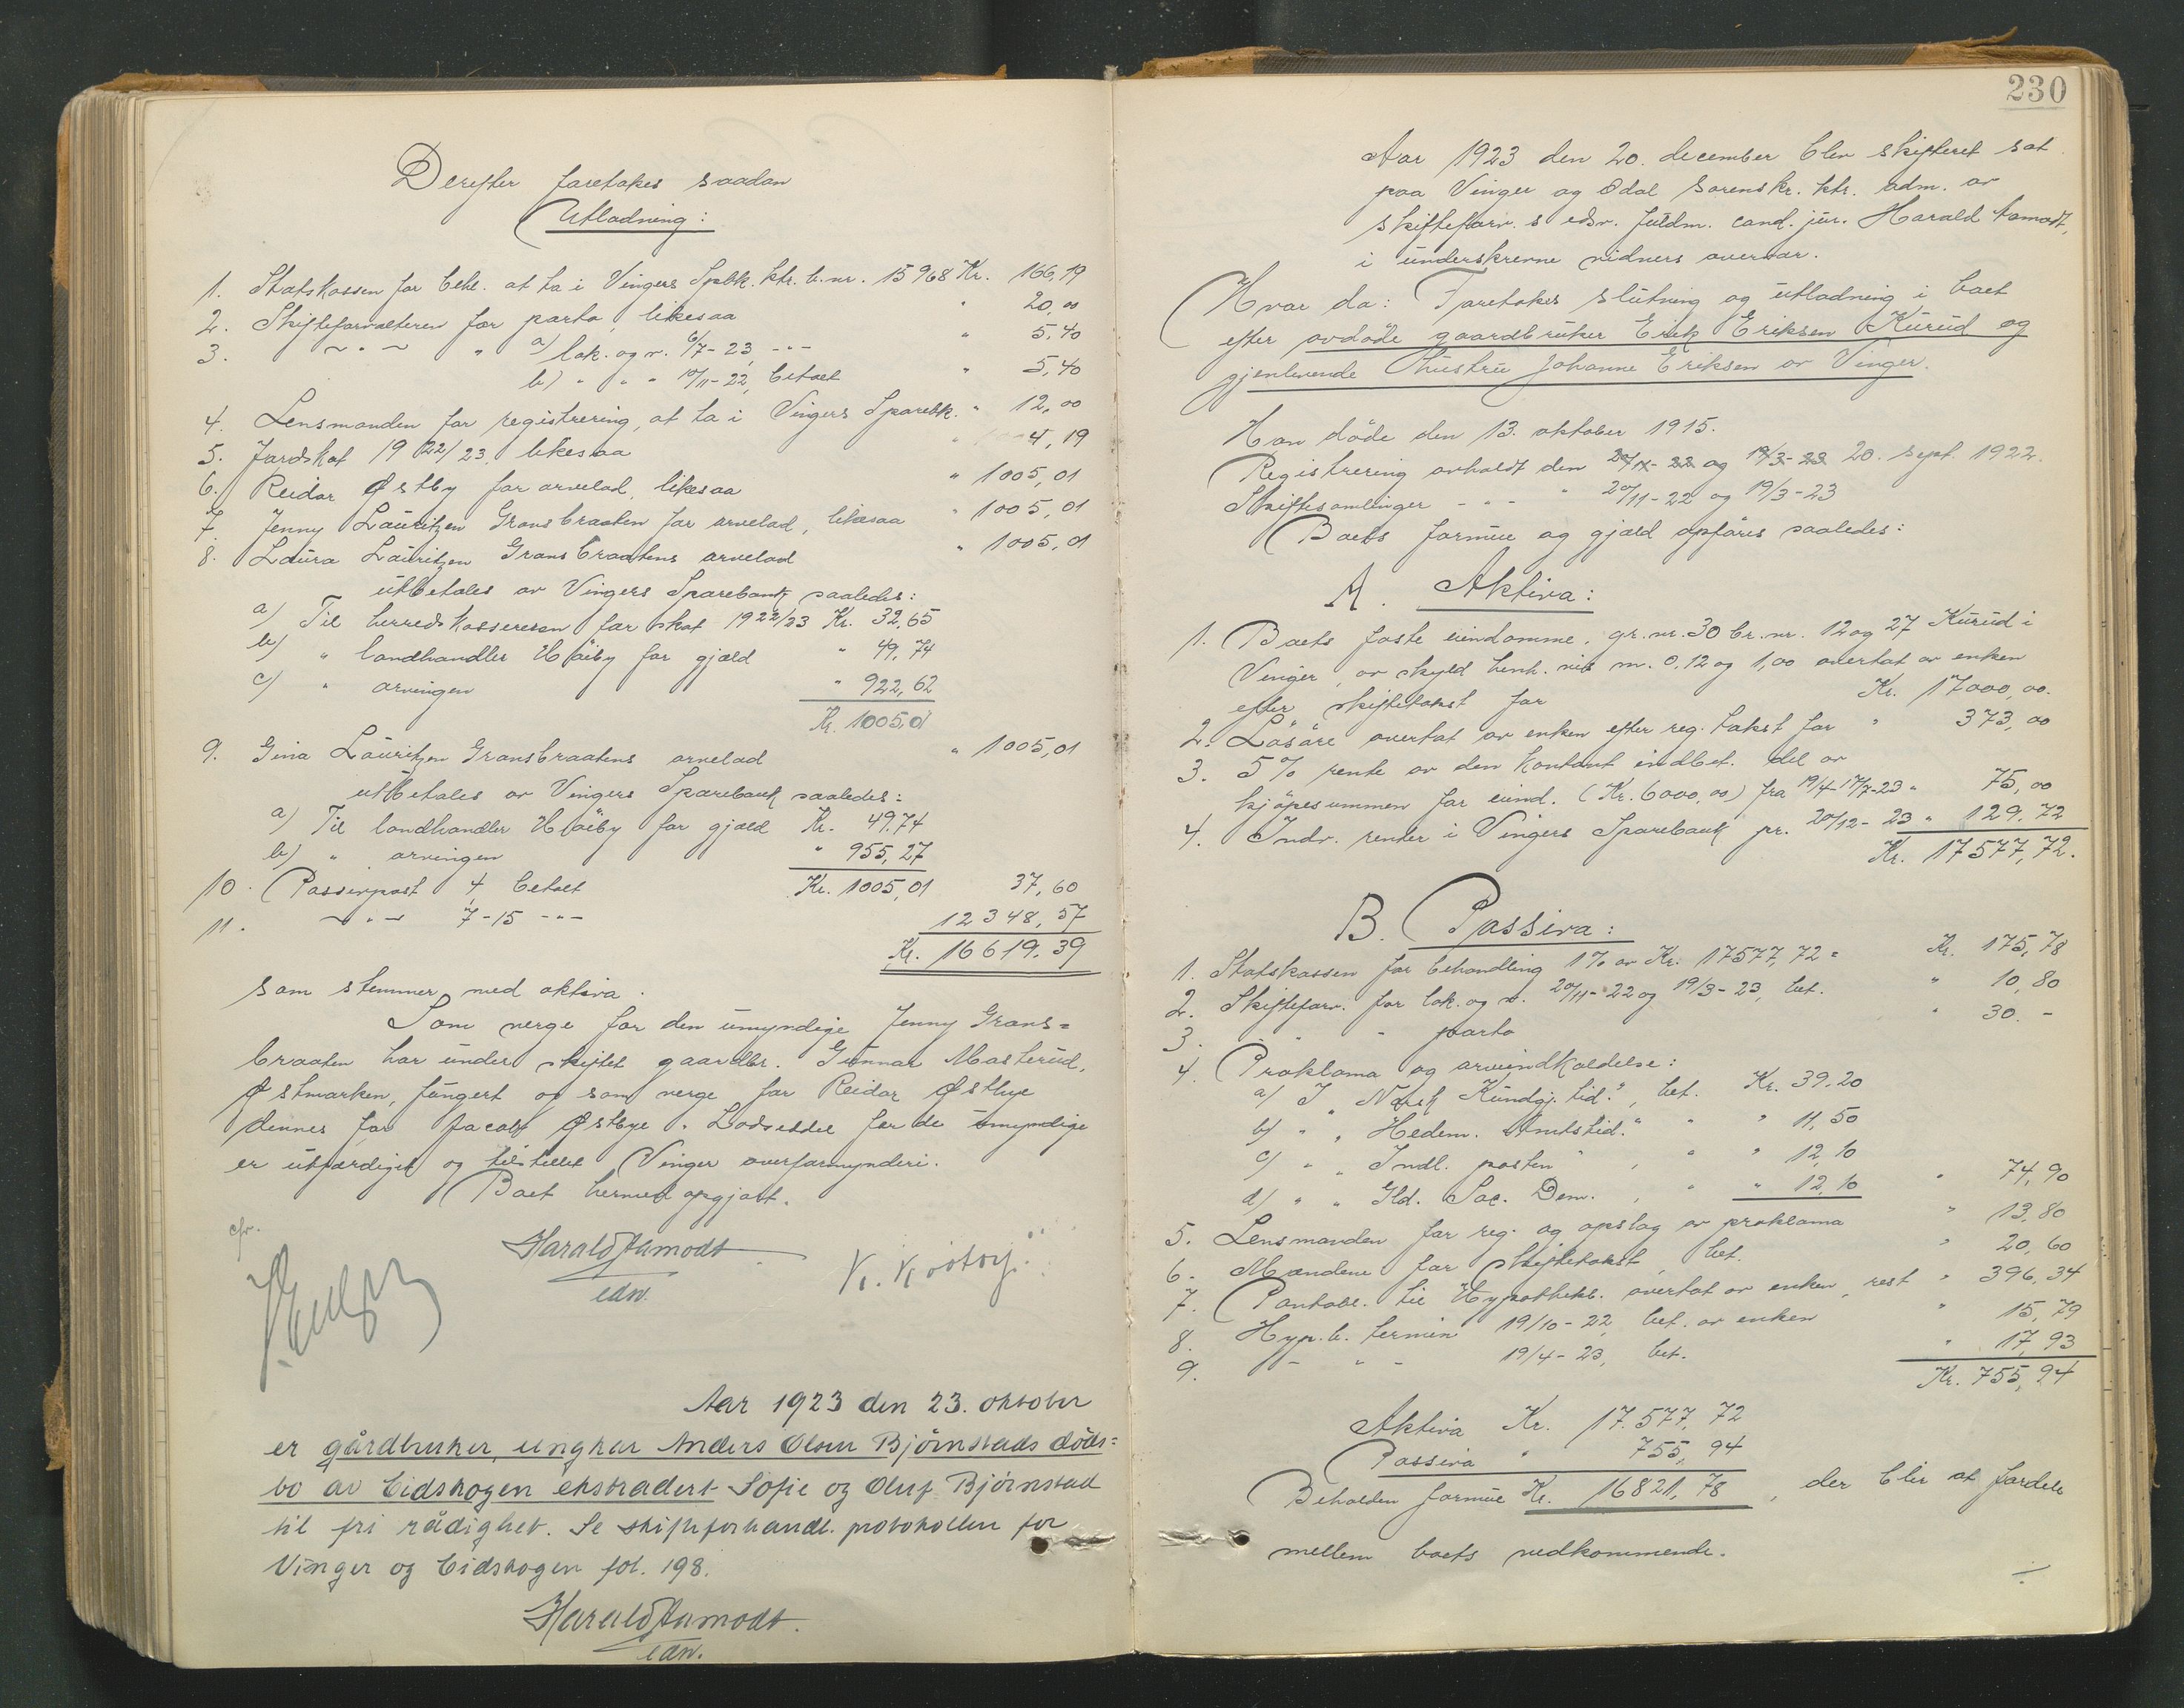 Derefter foretokes saadan
Utlodning:
1. Statskassen for behl. at ta i Vingers Spbk. ktr. b.nr. 15968 Kr. 166,19
2. Skifteforvalteren for porto, likesaa " 20,00
3. ~ " ~ " a) lok. og v. 6/7-23, -"- " 5,40
b) " " " 20/11-22, betalt " 5,40
4. Lensmanden for registrering, at ta i Vingers Sparebk. " 12,00
5. Jordskat 1922/23, likesaa " 4,19
6. Reidar Østby for arvelod, likesaa " 1005,01
7. Jenny Lauritzen Gransbraaten for arvelod, likesaa " 1005,01
8. Laura Lauritzen Gransbraatens arvelod " 1005,01
utbetales av Vingers Sparebank saaledes:
a) Til herredskassereren for skat 1922/23 Kr. 32,65
b) " landhandler Høiby for gjæld " 49,74
c) " arvingen " 922,62
Kr. 1005,01
9. Gina Lauritzen Gransbraatens arvelod " 1005,01
utbetales av Vingers Sparebank saaledes:
a) Til landhandler Høiby for gjæld Kr. 49.74
b) " arvingen " 955,27
10. Passivpost 4 betalt Kr. 1005,01 37,60
11. ~ " ~ 7-15 -"- 12348,57
Kr. 16619.39
som stemmer med aktiva.
Som verge for den umyndige Jenny Grans=
braaten har under skiftet gaardbr. Gunnar Masterud,
Østmarken, fungert og som verge for Reidar Østbye
dennes far Jacob Østbye. Lodseddel for de umyndige
er utfærdiget og tilstillet Vinger overformynderi.
Boet hermed opgjort.
cfr.
Harald Aamodt
edsv.
Aar 1923 den 23. oktober
er gårdbruker, ungkar Anders Olsen Bjørnstads døds=
bo av Eidskogen ekstradert Sofie og Oluf Bjørnstad
til fri rådighet. Se skifteforhandl. protokollen for
Vinger og Eidskogen fol. 198.
Harald Aamodt.
edsv.
230
Aar 1923 den 20. december blev skifteret sat
paa Vinger og Odal Sorenskr. ktr. adm. av
skifteforv. s edsv. fuldm. cand. jur. Harald Aamodt,
i underskrevne vidners overvær.
Hvor da: Foretokes slutning og utlodning i boet
efter avdöde gaardbruker Erik Eriksen Kurud og
gjenlevende hustru Johanne Eriksen av Vinger.
Han döde den 13. oktober 1915.
Registrering avholdt den 20/11-22 og 19/3-23 20. sept. 1922.
Skiftesamlinger - " - " 20/11-22 og 19/3-23
Boets formue og gjæld opföres saaledes:
A. Aktiva:
1. Boets faste eiendomme, gr.nr. 30 br.nr. 12 og 27 Kurud i
Vinger, av skyld henh.vis m. 0,12 og 1,00 overtat av enken
efter skiftetakst for Kr. 17000,00.
2. Lösöre overtat av enken efter reg. takst for " 373,00
3. 5% rente av den kontant indbet. del av
kjöpesummen for eiend. (Kr. 6000,00) fra 19/4-17/7-23 " 75,00
4. Indv. renter i Vingers Sparebank pr. 20/12-23 " 129.72
Kr. 17577,72.
B. Passiva:
1. Statskassen for behandling 1% av Kr. 17577,72 = Kr. 175,78
2. Skifteforv. for lok. og v. 20/11-22 og 19/3-23, bet. " 10,80
3. " - porto " 30.-
4. Proklama og arveindkaldelse:
a) I "Norsk Kundgj. tid.", bet. Kr. 39.20
b) " " Hedem. Amtstid." " " 11,50
c) " " Indl. posten " , " " 12,10
d) " " Gld. Soc. Dem. , " " 12,10 " 74,90
5. Lensmanden for reg. og opslag av proklama " 13,80
6. Mændene for skiftetakst, bet. " 20,60
7. Pantobl. til Hypothekb. overtat av enken, rest " 396,34
8. Hyp.b. termin 19/10-22, bet. av enken " 15,79
9. - " - 19/4-23, bet. " 17,93
Kr. 755,94
Aktiva Kr. 17.577,72
Passiva " 755,94
Beholden formue Kr. 16821,78, der blir at fordele
mellem boets vedkommende.